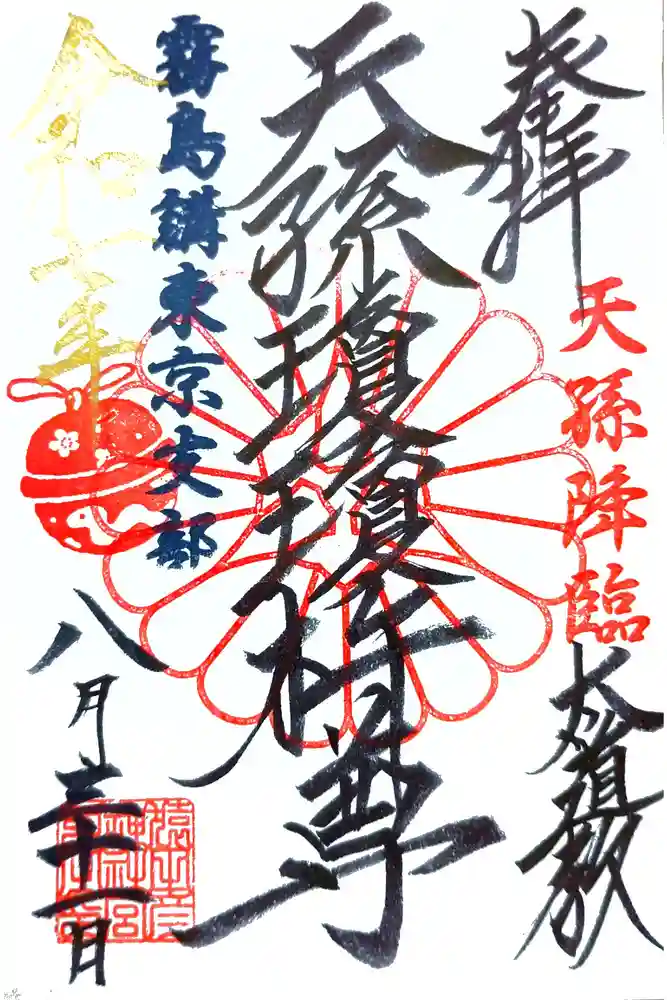 奉拝
天孫降臨
大道教
天孫瓊瓊杵尊
霧島講東京支部
令和二年
八月三十一日